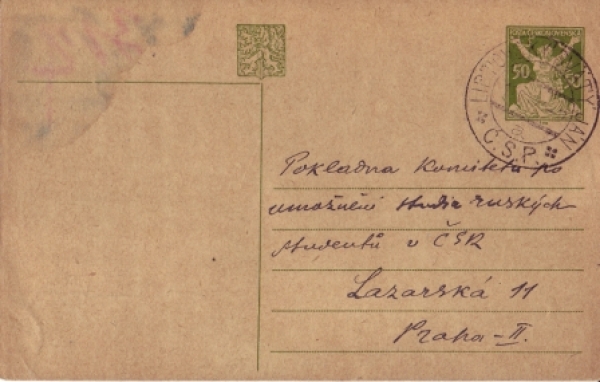 POŠTA ČESKOSLOVENSKÁ
50
LIPTOVSKÝ SVÄTÝ JÁN
Č.S.P.
a
Pokladna Komitétu po
umožnění studia ruských
studentů v ČSR
Lazarská 11
Praha-II.